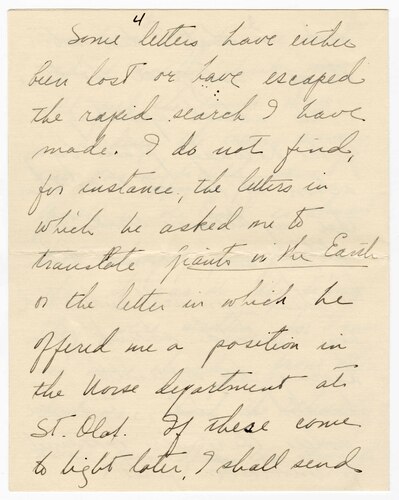 4
Some letters have either
been lost or have escaped
the rapid search I have
made. I do not find,
for instance, the letters in
which he asked me to
translate Giants in the Earth
or the letter in which he
offered me a position in
the Norse department at
St. Olaf. If these come
to light later, I shall send